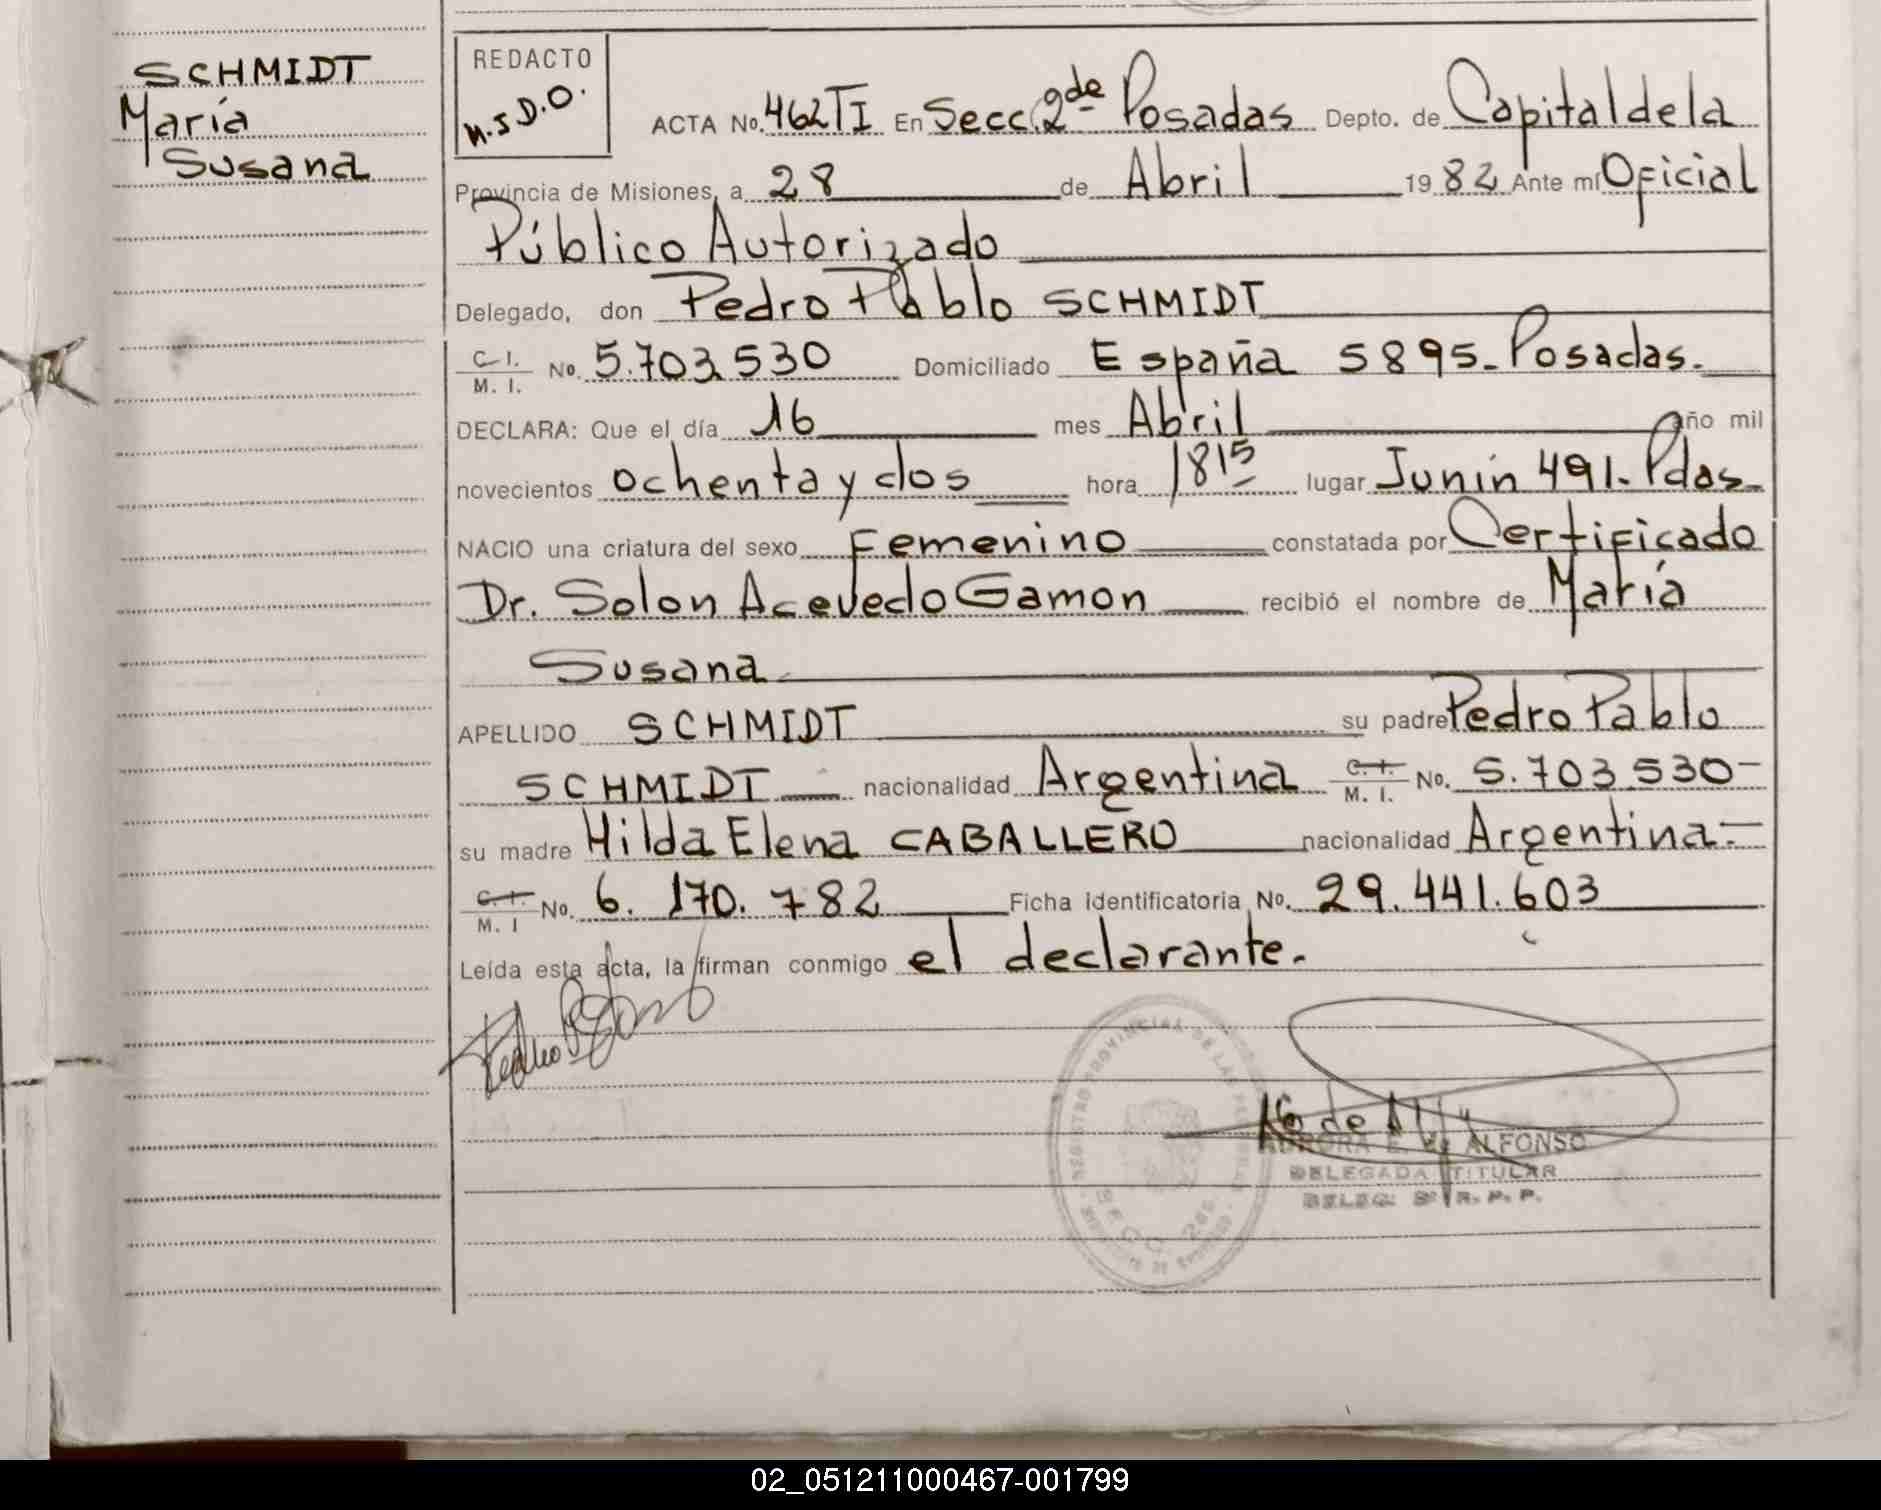 SCHMIDT
María
Susana
REDACTO
M.S D.O.
ACTA No. 462 TI En Secc. 2de Posadas Depto. de Capital de la
Provincia de Misiones, a 28 de Abril 1982 Ante mí Oficial
Público Autorizado
Delegado, don Pedro Pablo SCHMIDT
C. I.
M. I. No. 5.703.530 Domiciliado España 5895. Posadas.
DECLARA: Que el día 16 mes Abril año mil
novecientos ochenta y dos hora 1815 lugar Junín 491. Pdas.
NACIO una criatura del sexo Femenino constatada por Certificado
Dr. Solon Acevedo Gamon recibió el nombre de María
Susana
APELLIDO SCHMIDT su padre Pedro Pablo
SCHMIDT nacionalidad Argentina C. I.
M. I. No. 5.703.530
su madre Hilda Elena CABALLERO nacionalidad Argentina
C. I.
M. I No. 6.170.782 Ficha identificatoria No. 29.441.603
Leída esta acta, la firman conmigo el declarante.
Pedro
REGISTRO PROVINCIAL DE LAS PERSONAS
SECC. 2da
16 de
AURORA E. ALFONSO
DELEGADA TITULAR
DELEG. R. P. P.
02_051211000467-001799